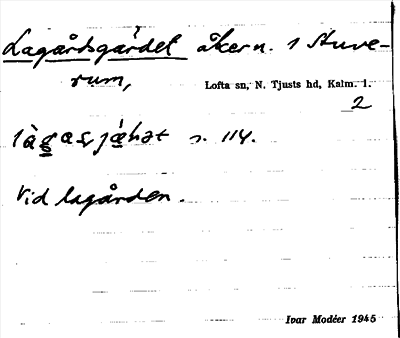 Lagårdsgärdet åkern. 1 Stuve-
rum,
Lofta sn, N. Tjusts hd, Kalm. l.
2
s. 114.
Vid lagården.
Ivar Modéer 1945